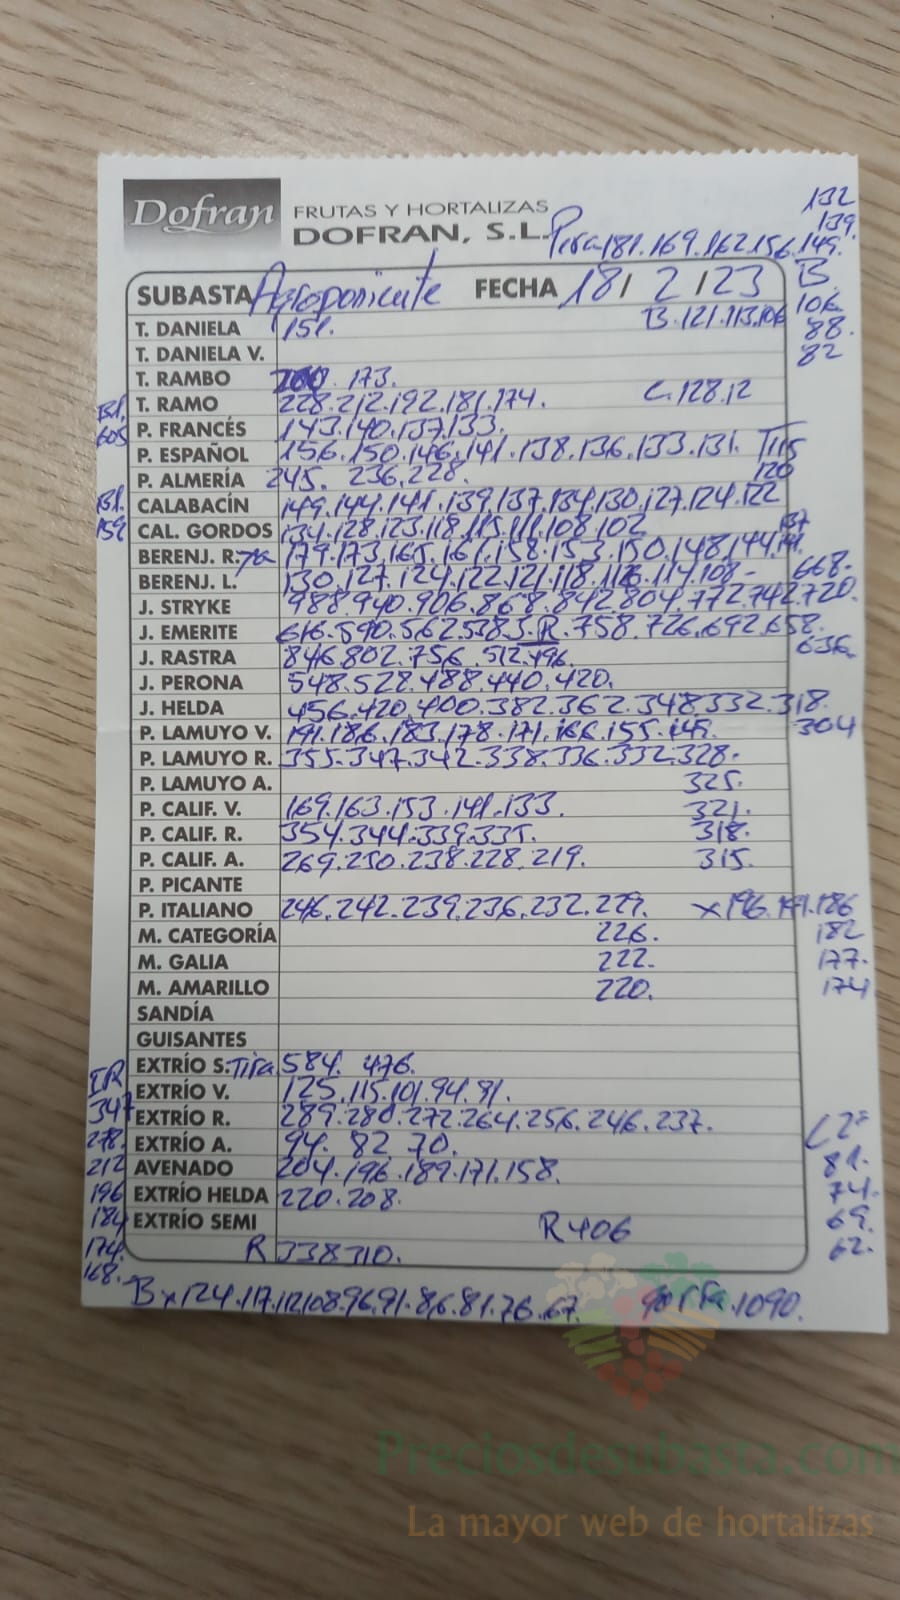 132
Dofran FRUTAS Y HORTALIZAS 139.
DOFRAN, S.L. Pera 181.169.162.156.149.
SUBASTA Agroponiente FECHA 18/2/23 B.
T. DANIELA 151. B.121.113.106 106.
88.
T. DANIELA V. 82
T. RAMBO 173.
T. RAMO 228.212.192.181.174. C.128.12
B1. P. FRANCÉS 143.140.137.133.
605 P. ESPAÑOL 156.150.146.141.138.136.133.131. T115
P. ALMERÍA 245. 236.228. 120
B1. CALABACÍN 149.144.141.139.137.134.130.127.124.122
159 CAL. GORDOS 134.128.123.118.115.111.108.102 137
BERENJ. R. 179.173.165.161.158.153.150.148.144.141.
BERENJ. L. 130.127.124.122.121.118.116.114.108- 668.
J. STRYKE 988.940.906.868.842.804.772.742.720.
J. EMERITE 616.590.562.538 R.758.726.692.658.
J. RASTRA 846.802.756.512.496. 636.
J. PERONA 548.528.488.440.420.
J. HELDA 456.420.400.382.362.348.332.318.
P. LAMUYO V. 191.186.183.178.171.166.155.149. 304
P. LAMUYO R. 355.347.342.338.336.332.328.
P. LAMUYO A. 325.
P. CALIF. V. 169.163.153.141.133. 321.
P. CALIF. R. 354.344.339.335. 318.
P. CALIF. A. 269.250.238.228.219. 315.
P. PICANTE
P. ITALIANO 246.242.239.236.232.229. x196.191.186
M. CATEGORÍA 226. 182
M. GALIA 222. 177.
M. AMARILLO 220. 174
SANDÍA
GUISANTES
EXTRÍO S: Tira 584. 476.
IR EXTRÍO V. 125.115.101.94.81.
347 EXTRÍO R. 289.280.272.264.256.246.237. L2ª
278. EXTRÍO A. 94. 82. 70.
212 AVENADO 204.196.189.171.158. 81.
196 EXTRÍO HELDA 220.208. 74.
184 EXTRÍO SEMI R406 69.
174. R 338310. 62.
168.
Bx124.117.112.108.96.91.86.81.76.67. gorra.1090.
Preciosdesubasta.com
La mayor web de hortalizas